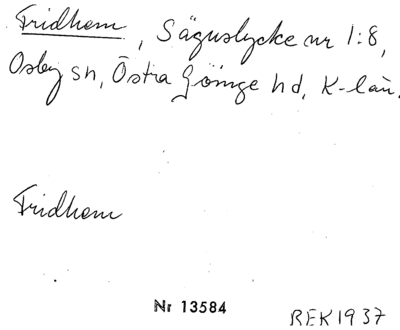 Fridhem, Säguslycke nr 1:8,
Osby sn, Östra Göinge hd, K-län.
Fridhem
Nr 13584
REK1937